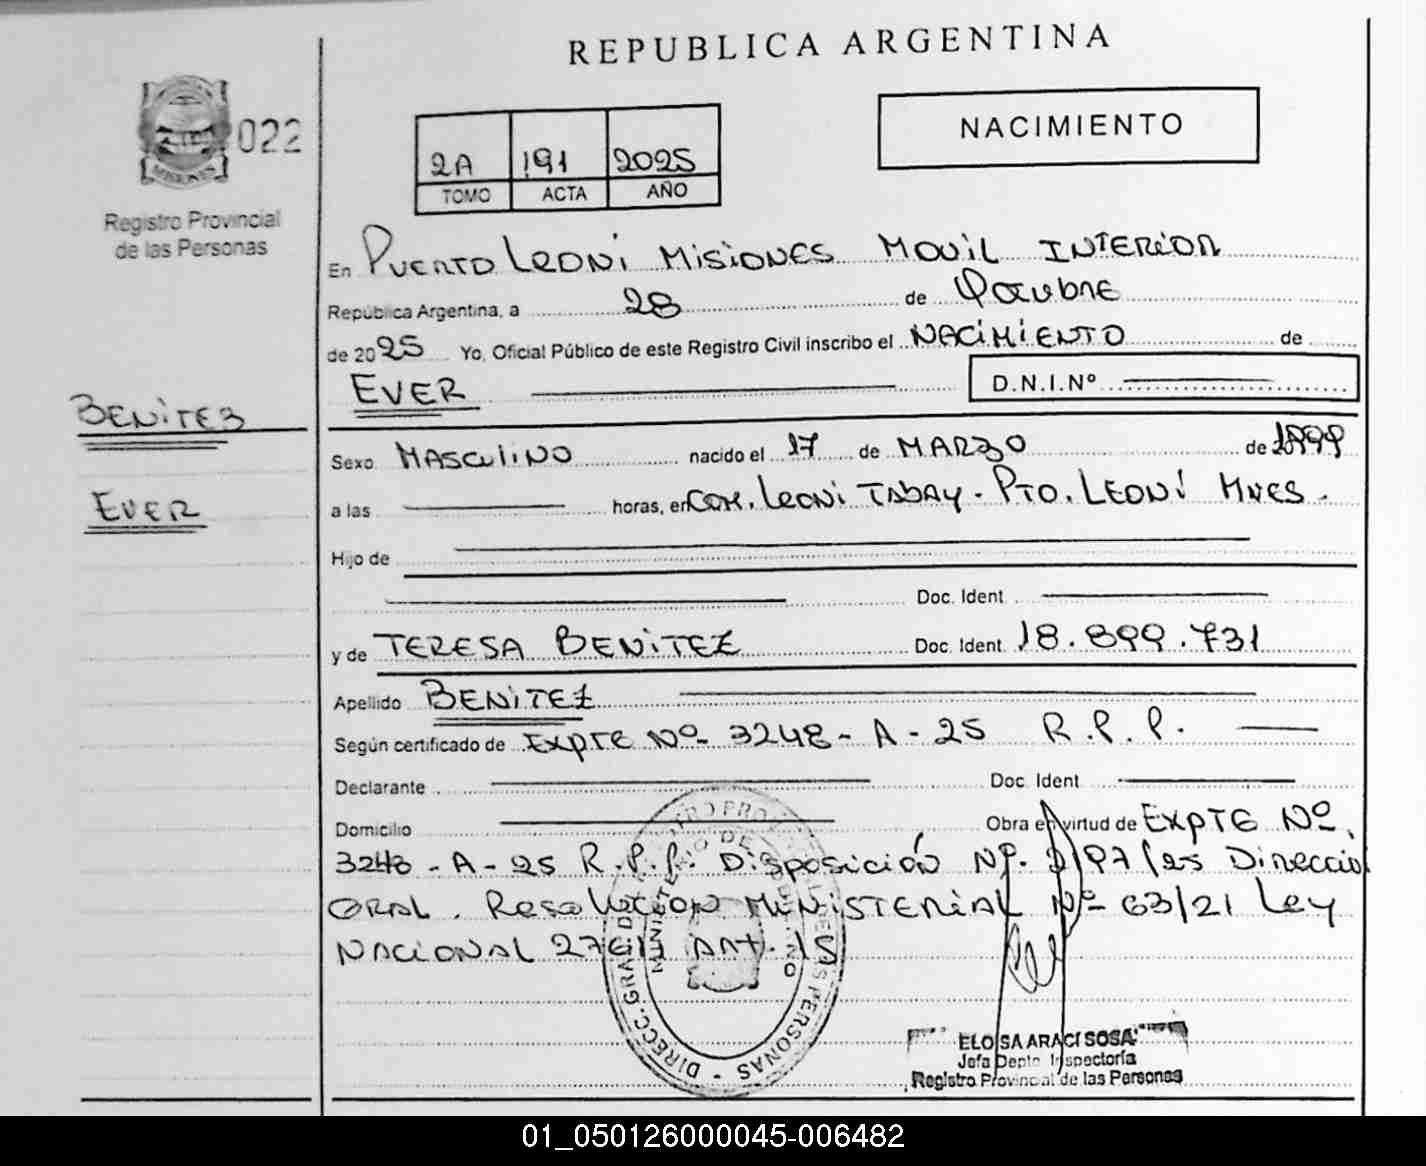 REPUBLICA ARGENTINA
022
MISIONES
Registro Provincial
de las Personas
2A 191 2025
TOMO ACTA AÑO
NACIMIENTO
En PUERTO LEONI MISIONES MOVIL INTERIOR
República Argentina, a 28 de Octubre
de 2025 Yo, Oficial Público de este Registro Civil inscribo el NACIMIENTO de
EVER D.N.I.Nº
BENITEZ
EVER
Sexo MASCULINO nacido el 17 de MARZO de 1999
a las horas, en COM. LEONI TABAY - PTO. LEONI MNES.
Hijo de
Doc. Ident
y de TERESA BENITEZ Doc. Ident 18.899.731
Apellido BENITEZ
Según certificado de EXPTE Nº 3248 - A - 25 R.P.P.
Declarante Doc. Ident
Domicilio Obra en virtud de EXPTE Nº.
3248 - A - 25 R.P.P. DISPOSICIÓN Nº. /25 DIRECCIO
GRAL. RESOLUCION MINISTERIAL Nº 63/21 LEY
NACIONAL 27611 ART. 15
DIRECC. GRAL DE
PERSONAS
ELOISA ARACI SOSA
Jefa Depto Inspectoría
Registro Provincial de las Personas
01_050126000045-006482